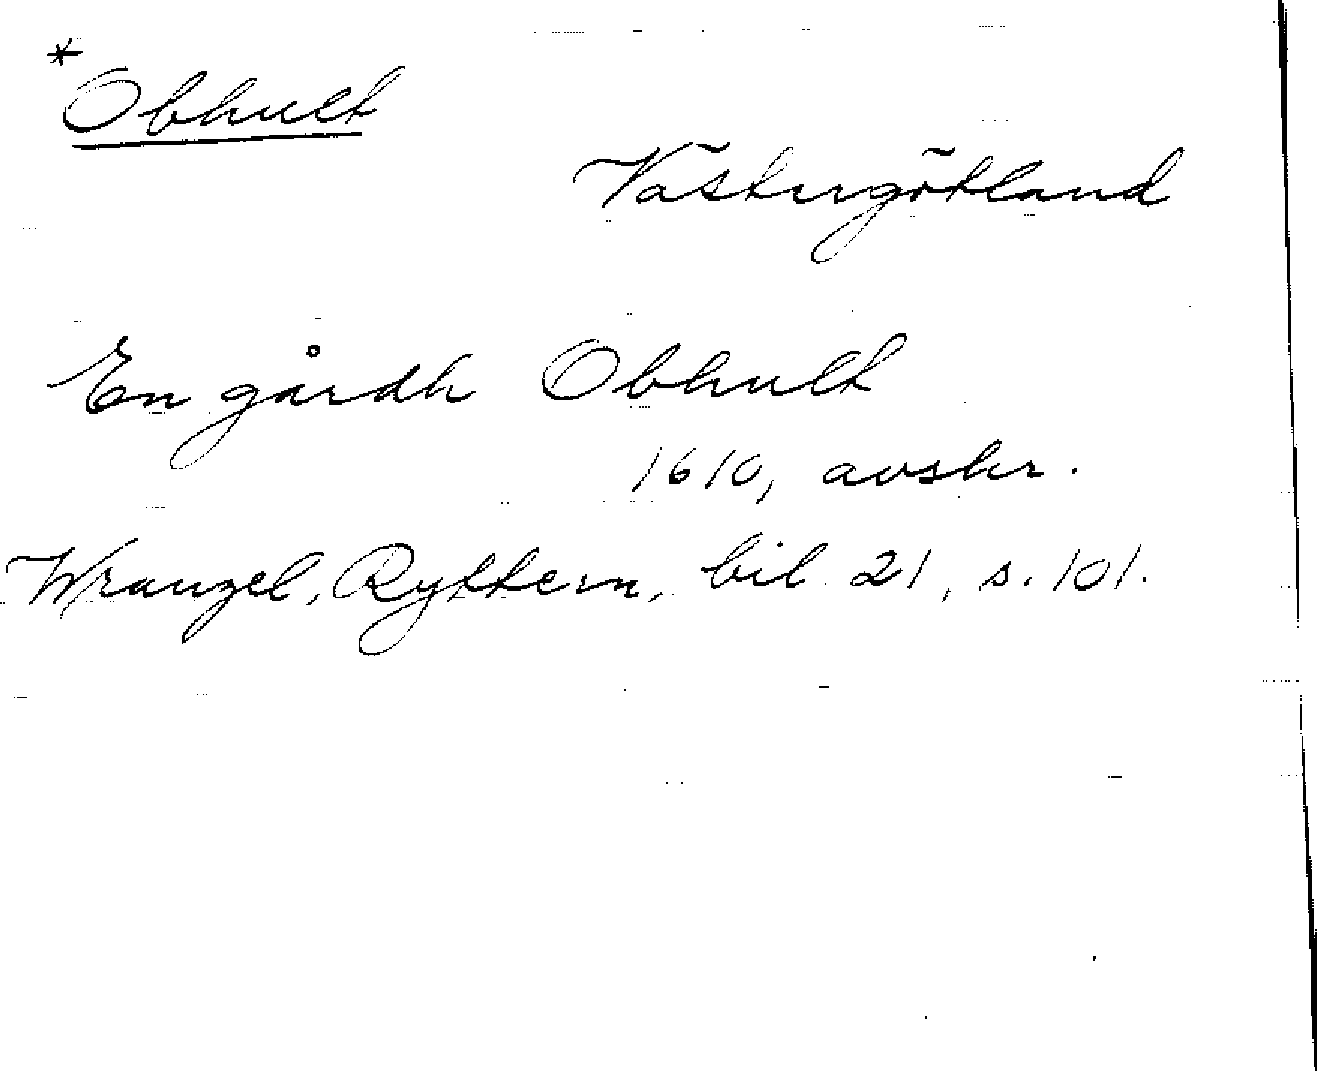 *
Obhult
Västergötland
En gårdh Obhult
1610, avskr.
Wrangel, Ryttern, bil 21, s. 101.